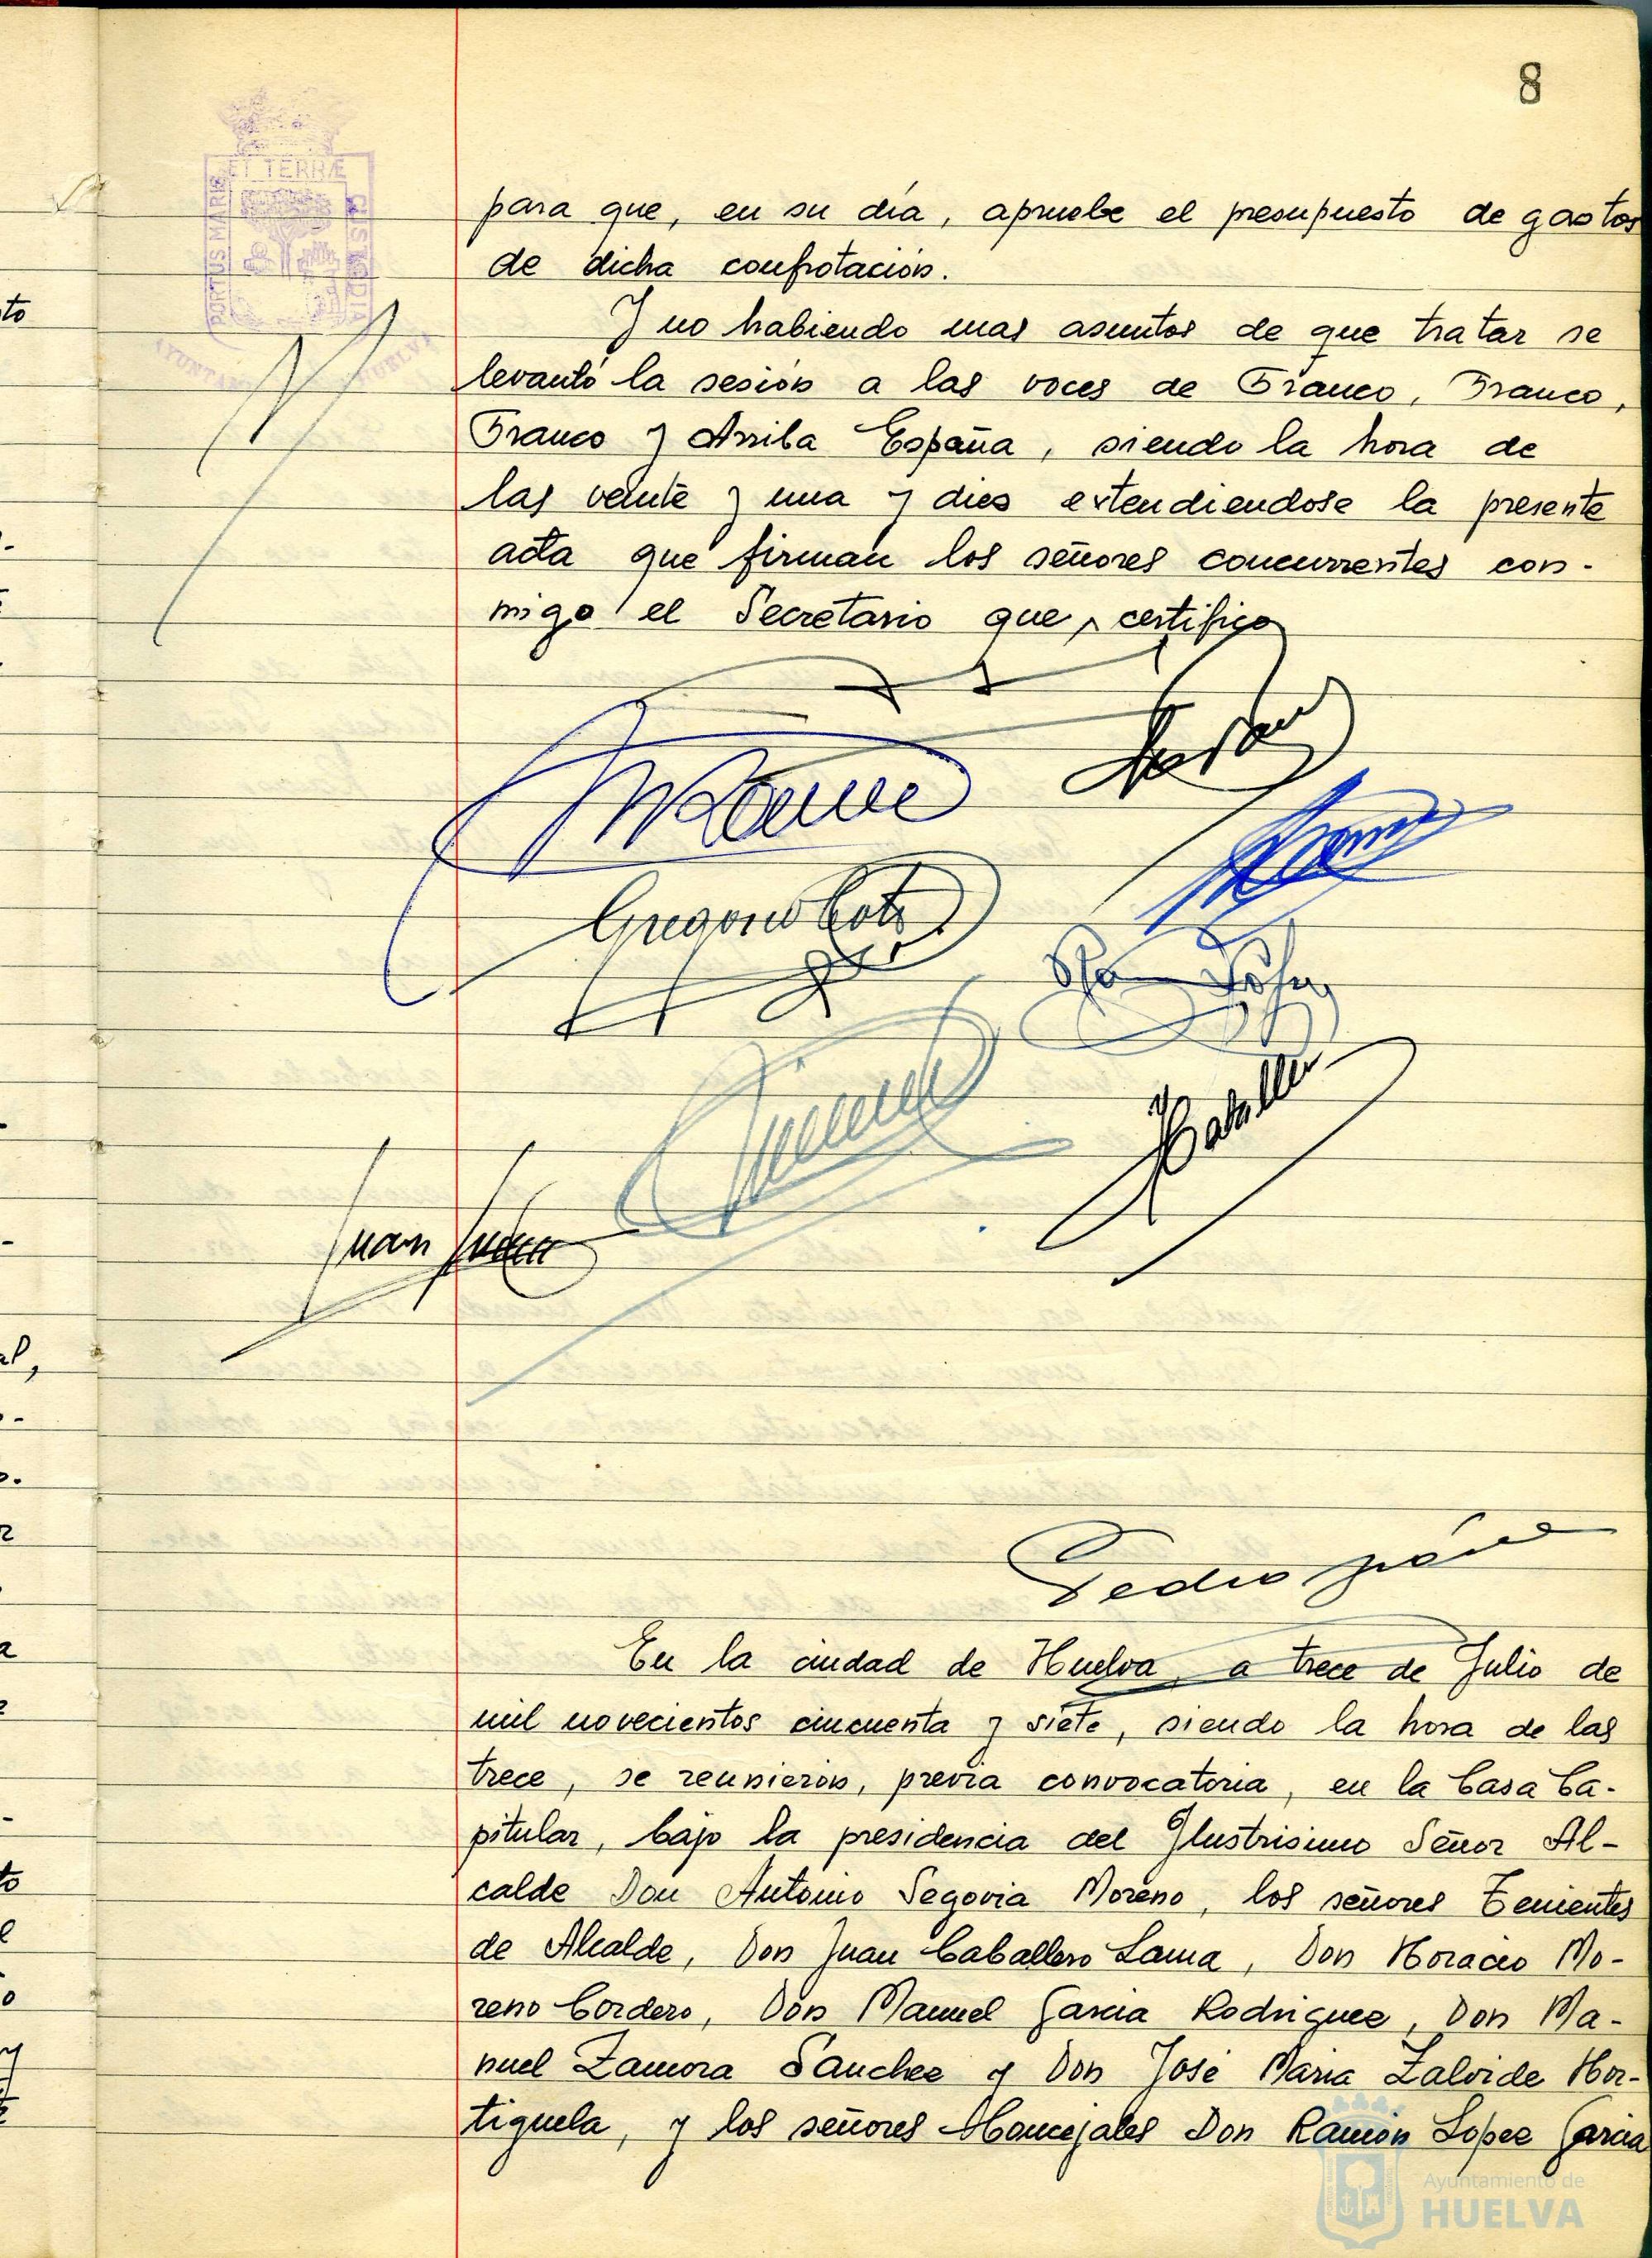 8
ET TERRÆ
PORTUS MARIS
CUSTODIA
para que, en su día, apruebe el presupuesto de gastos
de dicha confrotación.
Y no habiendo mas asuntos de que tratar se
levantó la sesión a las voces de Franco, Franco,
Franco y Arriba España, siendo la hora de
las veinte y una y diez extendiendose la presente
acta que firman los señores concurrentes con-
migo el Secretario que, certifico
Gregorio
Juan
Caballero
Pedro
En la ciudad de Huelva, a trece de Julio de
mil novecientos cincuenta y siete, siendo la hora de las
trece, se reunierón, previa convocatoria, en la Casa Ca-
pitular, bajo la presidencia del Ilustrisimo Señor Al-
calde Don Antonio Segovia Moreno, los señores Tenientes
de Alcalde, Don Juan Caballero Lama, Don Horacio Mo-
reno Cordero, Don Manuel Garcia Rodriguez, Don Ma-
nuel Zamora Sanchez y Don José Maria Zalvide Hor-
tiguela, y los señores Concejales Don Ramón Lopez Garcia
Ayuntamiento de
HUELVA